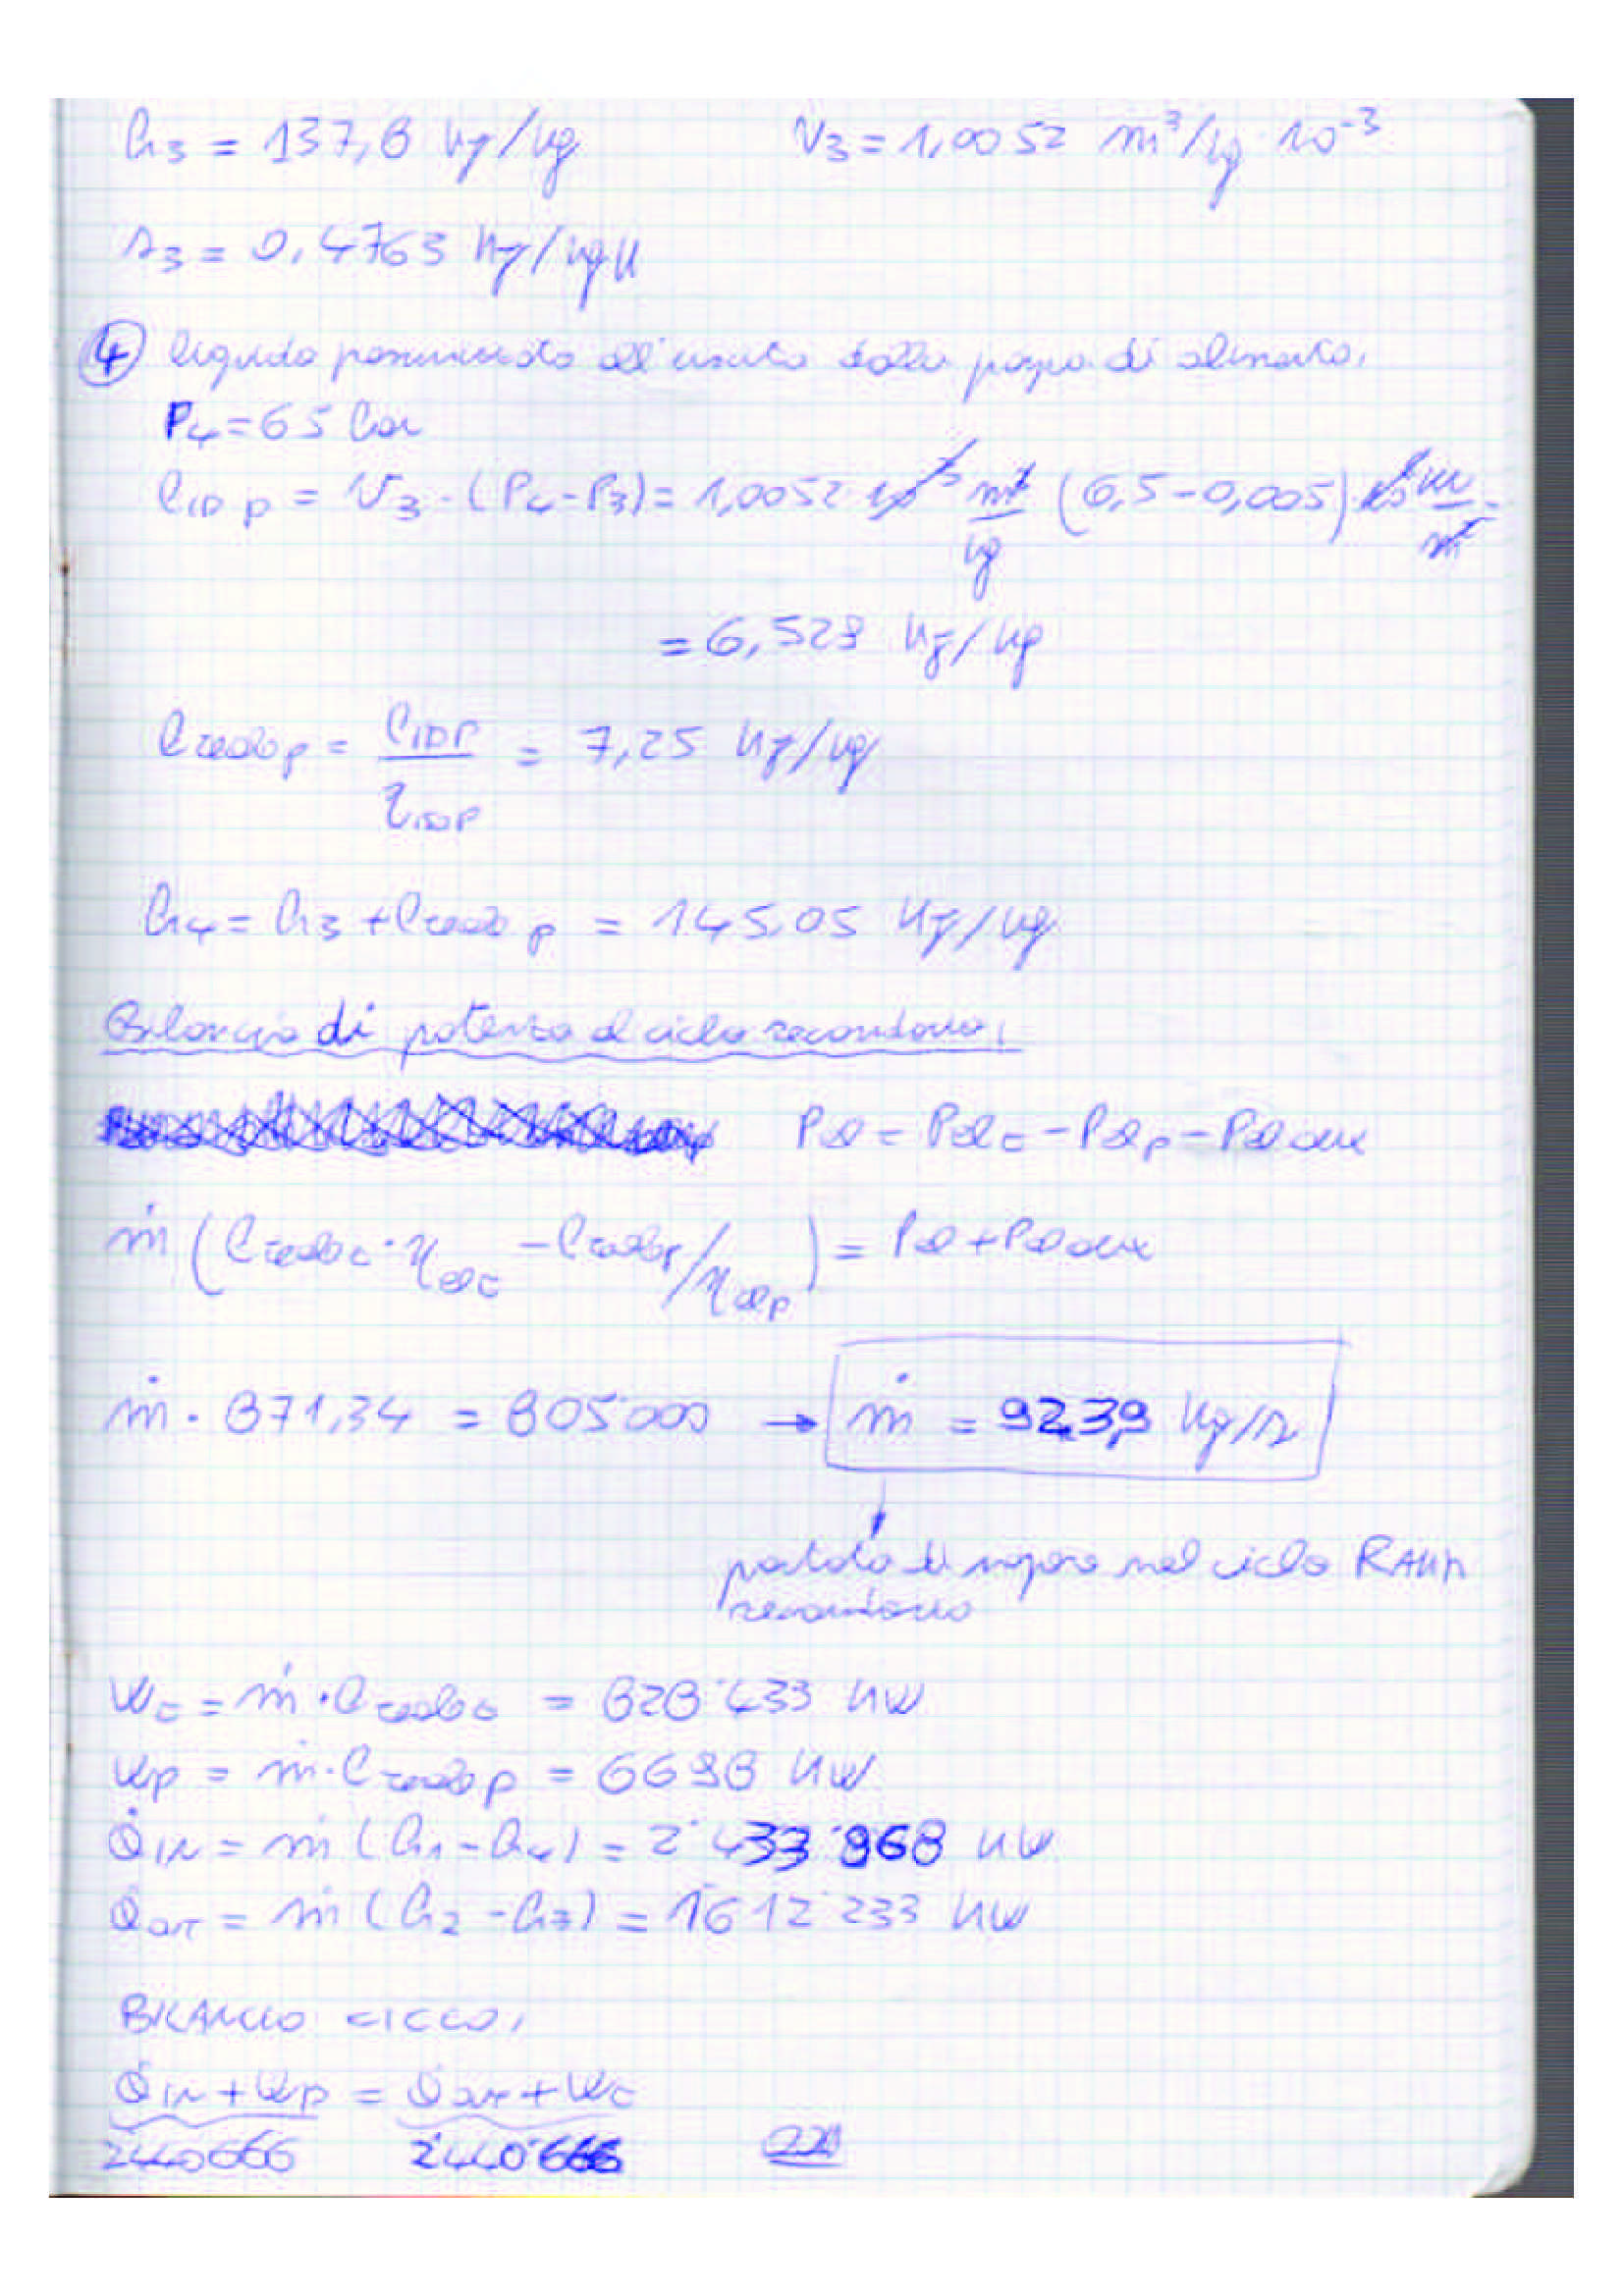 h3 = 137,8 kJ/kg v3 = 1,0052 m³/kg 10⁻³
s3 = 0,4763 kJ/kgK
④ liquido pressurizzato all'uscita dalla pompa di alimento,
P4 = 65 bar
lID P = v3 · (P4 - P3) = 1,0052 10⁻³ m³/kg (6,5 - 0,005) 10³
= 6,529 kJ/kg
lreale p = lIDP / ηisoP = 7,25 kJ/kg
h4 = h3 + lreale p = 145,05 kJ/kg
Bilancio di potenza al ciclo secondario,
Pel = Pelt - Pelp - Pel aux
ṁ (lreale t · ηelt - lreale p / ηelp) = Pel + Pel aux
ṁ · 871,34 = 805'000 → ṁ = 923,9 kg/s
portata di vapore nel ciclo RANK
secondario
Wt = ṁ · lreale t = 828'433 kW
Wp = ṁ · lreale p = 6698 kW
Q̇in = ṁ (h1 - h4) = 2'433'968 kW
Q̇out = ṁ (h2 - h3) = 1'612'233 kW
BILANCIO CICLO,
Q̇in + Wp = Q̇out + Wt
2440666 2'440'666